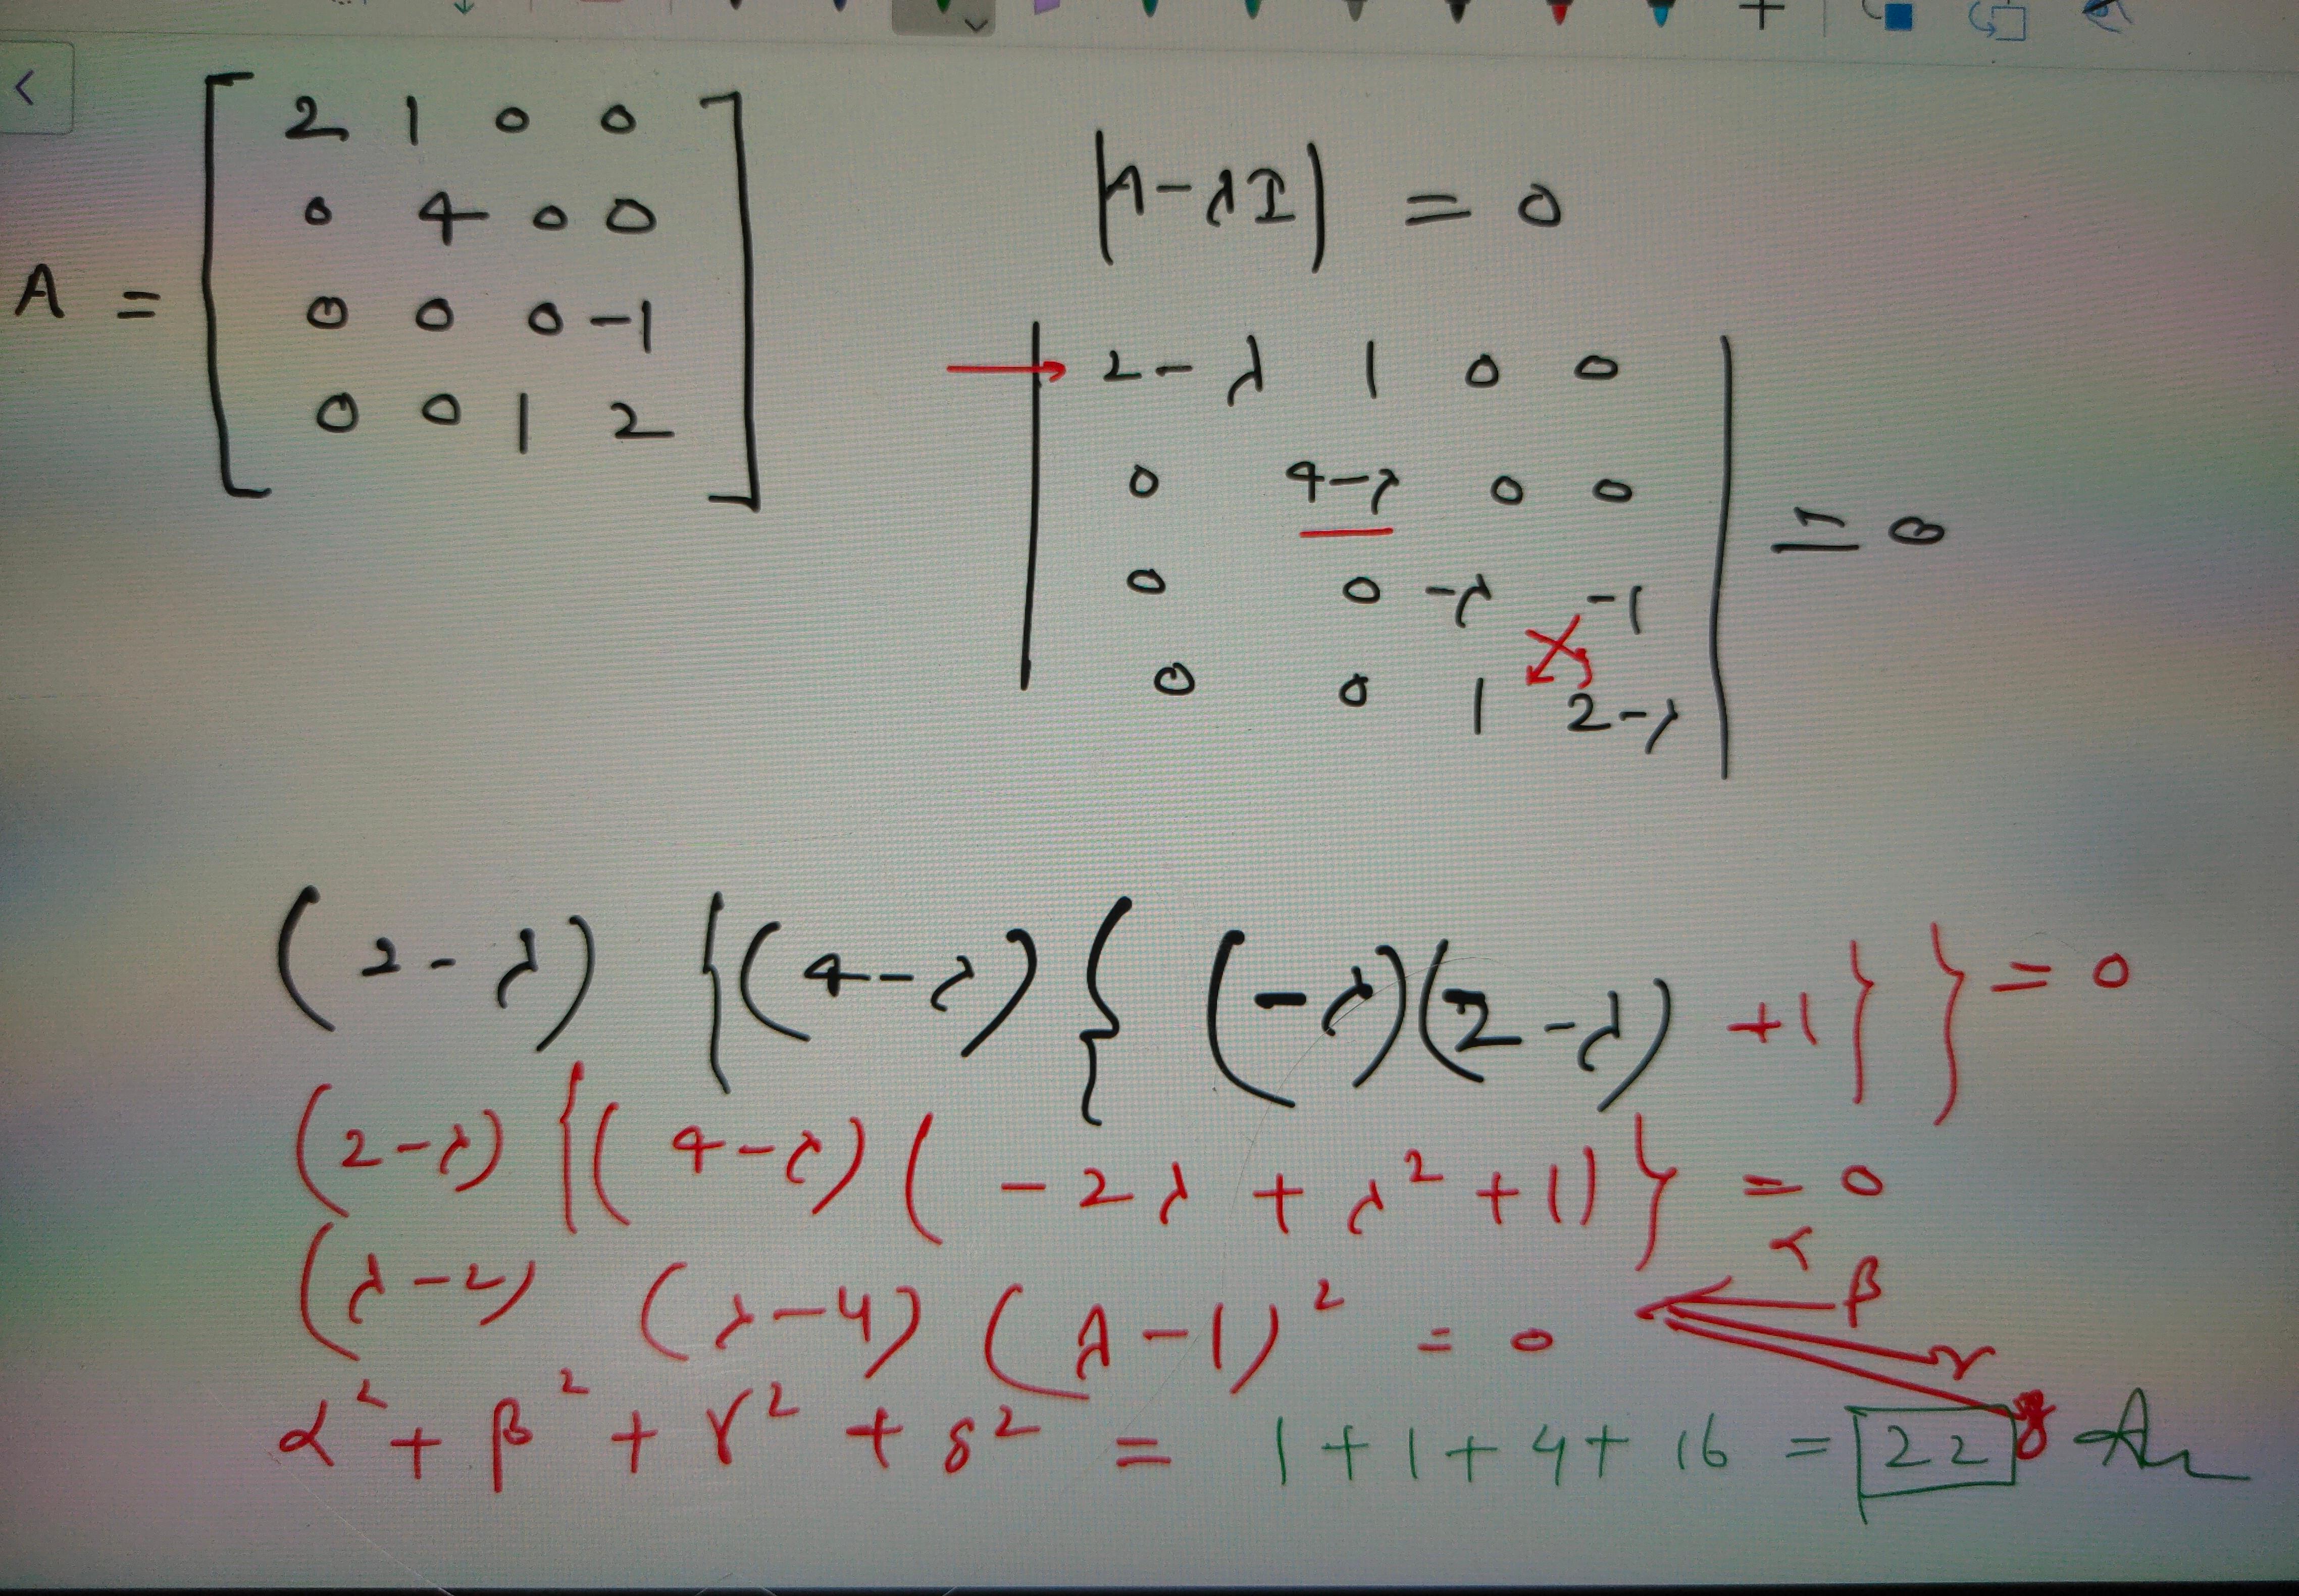 2 1 0 0
0 4 0 0
A = 0 0 0 -1
0 0 1 2
|A-λI| = 0
2-λ 1 0 0
0 4-λ 0 0
= 0
0 0 -λ -1
0 0 1 2-λ
(2-λ) {(4-λ){(-λ)(2-λ) +1}} = 0
(2-λ) {(4-λ)(-2λ + λ² + 1)} = 0
(λ-2) (λ-4) (λ-1)² = 0
α
β
γ
δ
α² + β² + γ² + δ² = 1 + 1 + 4 + 16 = 22